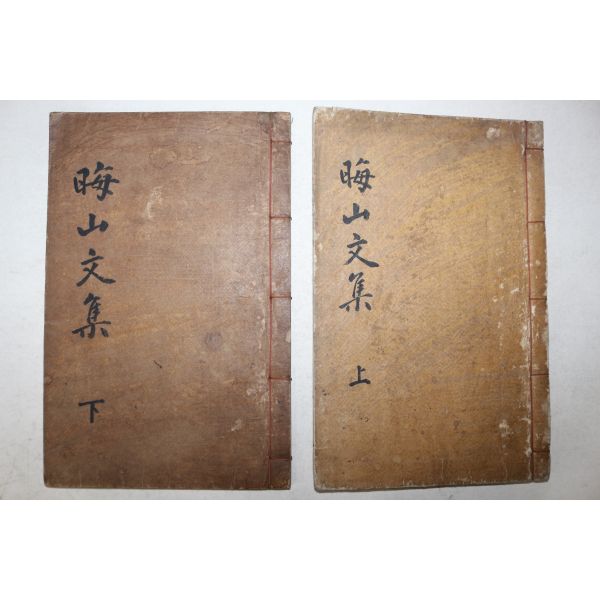 晦山文集
上
晦山文集
下